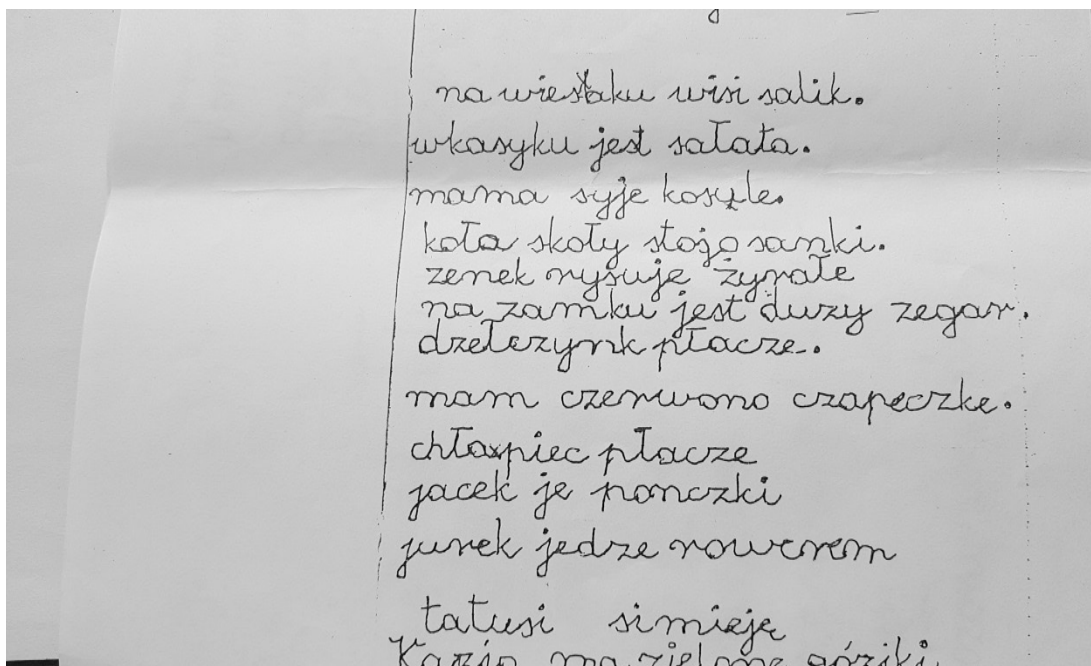 na wiesaku wisi salik.
wkasyku jest sałata.
mama syje kosyle.
koła skoły stojo sanki.
zenek rysuję żyrałe
na zamku jest duzy zegar.
dzełczynk płacze.
mam czerwono czapeczke.
chłopiec płacze
jacek je ponczki
jurek jedze rowerem
tatusi simieję
Kazio ma zielone góziki